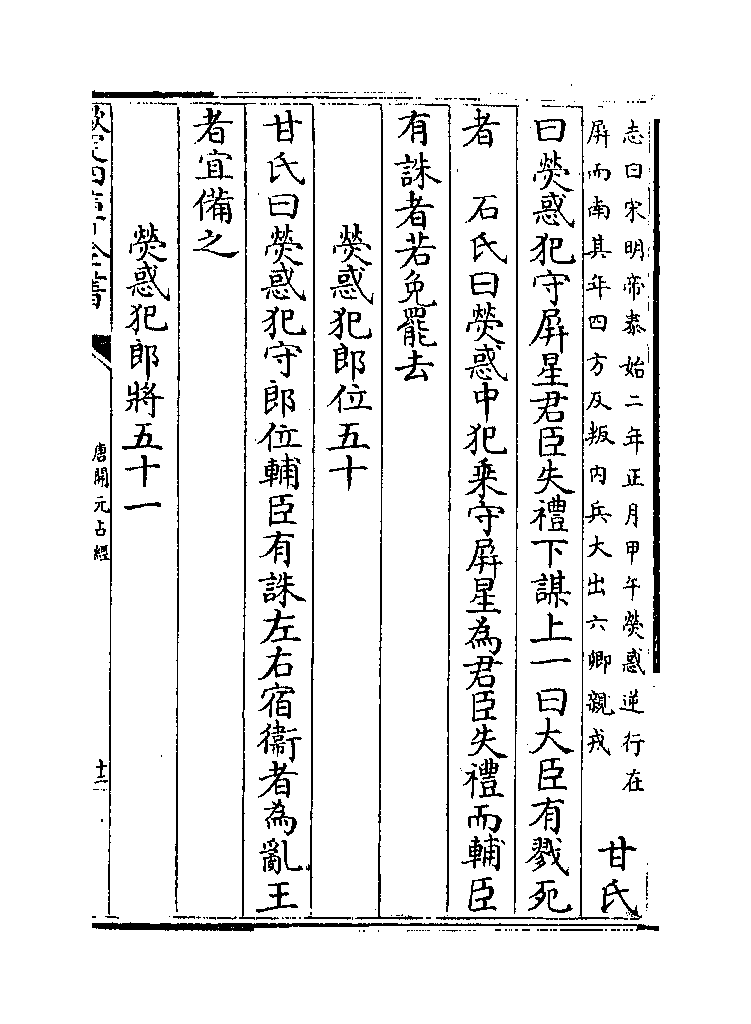 志曰宋明帝泰始二年正月甲午熒惑逆行在
屏西南其年四方反叛内兵大出六卿親戎
甘氏
曰熒惑犯守屏星君臣失禮下謀上一曰大臣有戮死
者　石氏曰熒惑中犯乗守屏星為君臣失禮而輔臣
有誅者若免罷去
熒惑犯郎位五十
甘氏曰熒惑犯守郎位輔臣有誅左右宿衞者為亂王
者宜備之
熒惑犯郎將五十一
欽定四庫全書
唐開元占經
十二